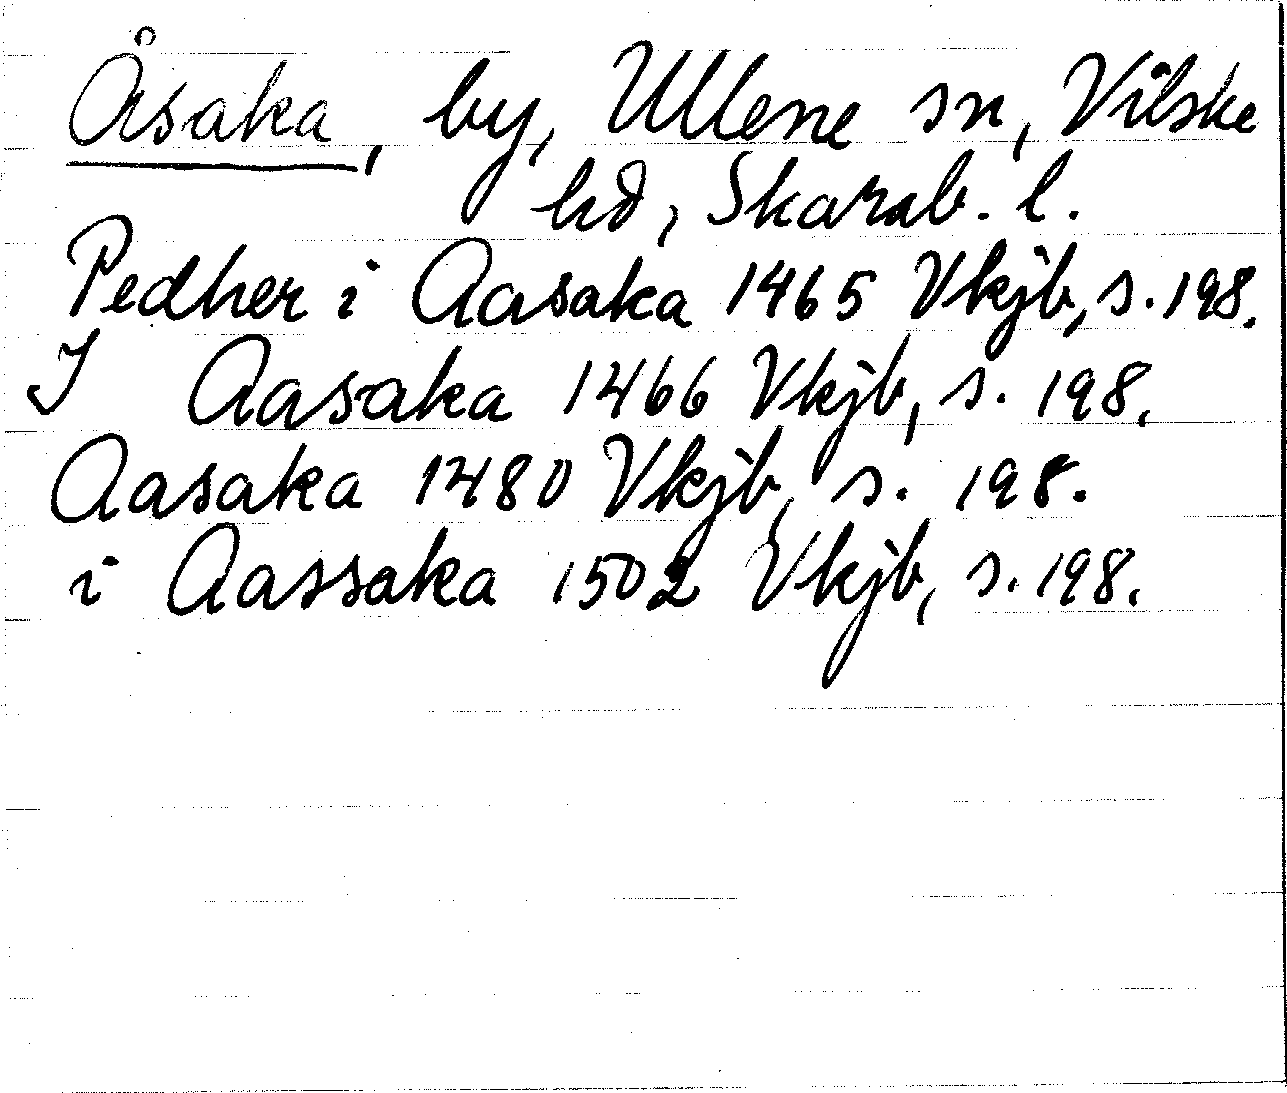 Åsaka, by, Ullene sn, Vilske
hd, Skarab. l.
Pedher i Aasaka 1465 Vkjb, s. 198.
I Aasaka 1466 Vkjb, s. 198.
Aasaka 1480 Vkjb, s. 198.
i Aassaka 1502 Vkjb, s. 198.